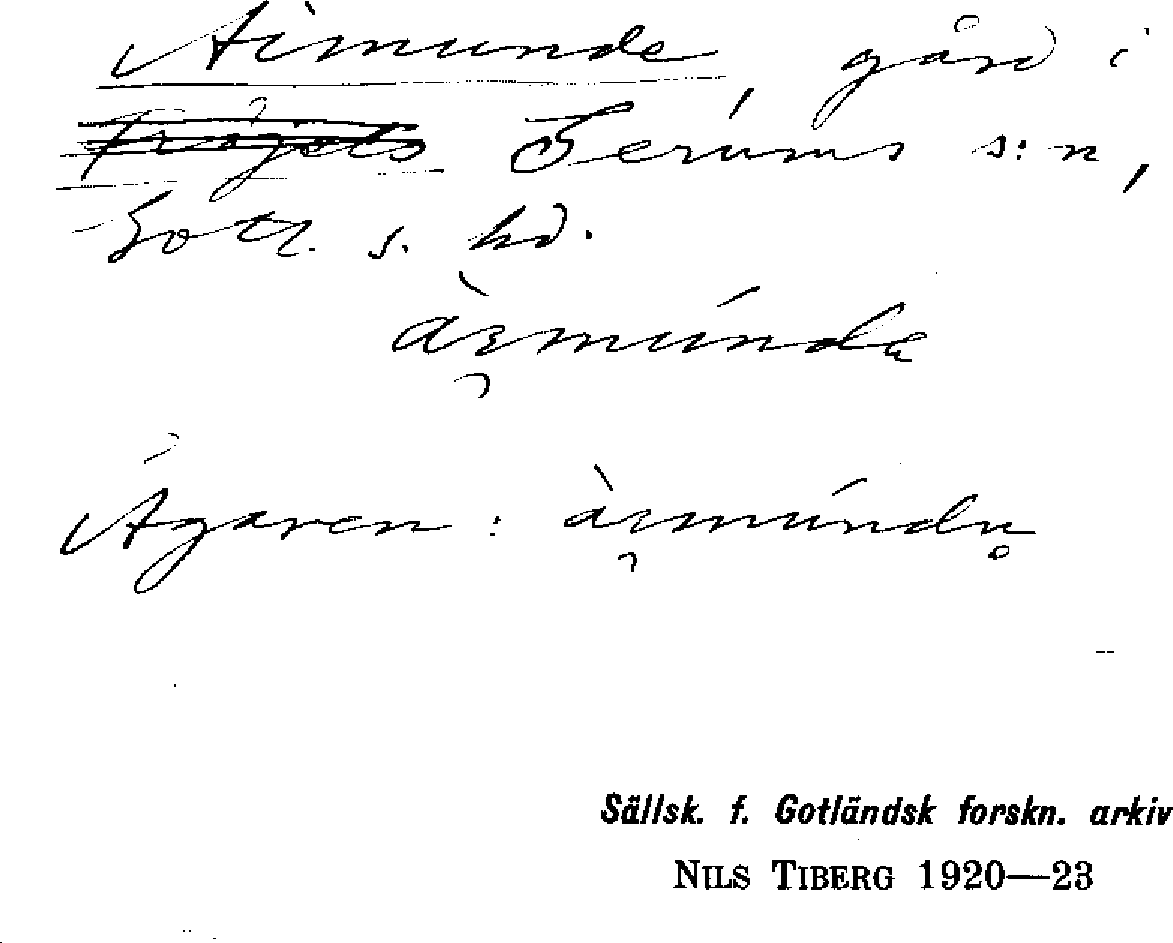 Aimunde, gård i
Fröjels Gerums s:n,
Gotl. s. hd.
àımúnda
Ägaren: àımúndu
Sällsk. f. Gotländsk forskn. arkiv
NILS TIBERG 1920—23